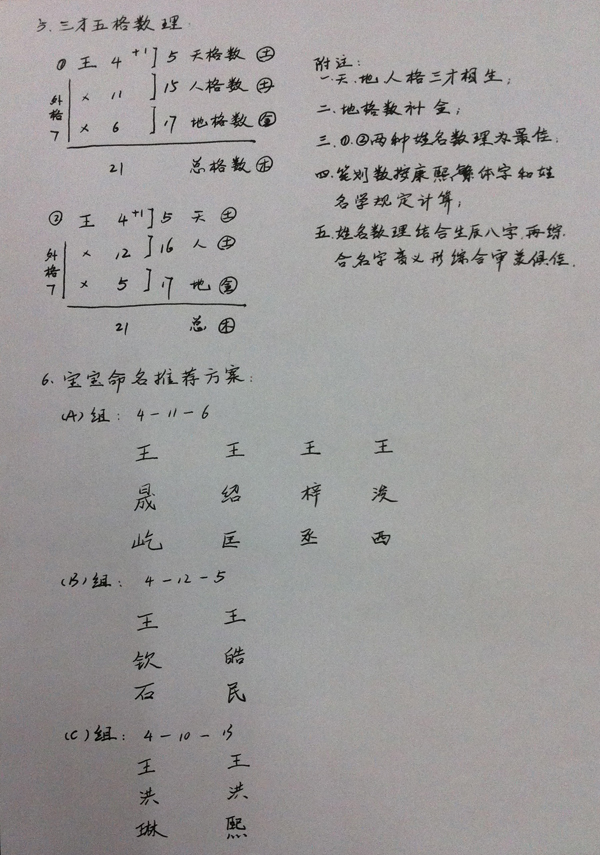 5. 三才五格数理
① 王 4 +1 ] 5 天格数 土
× 11 ] 15 人格数 土
外格7
× 6 ] 17 地格数 金
21 总格数 木
② 王 4 +1 ] 5 天 土
× 12 ] 16 人 土
外格7
× 5 ] 17 地 金
21 总 木
附注：
一.天.地人格三才相生；
二.地格数补金；
三.①.②两种姓名数理为最佳；
四.笔划数按康熙,繁体字和姓
名学规定计算；
五.姓名数理结合生辰八字.再综
合名字音义形综合审美俱佳.
6. 宝宝命名推荐方案：
(A)组： 4-11-6
王 王 王 王
晟 绍 梓 浚
屹 匡 丞 西
(B)组： 4-12-5
王 王
钦 皓
石 民
(C)组： 4-10-13
王 王
洪 洪
琳 熙